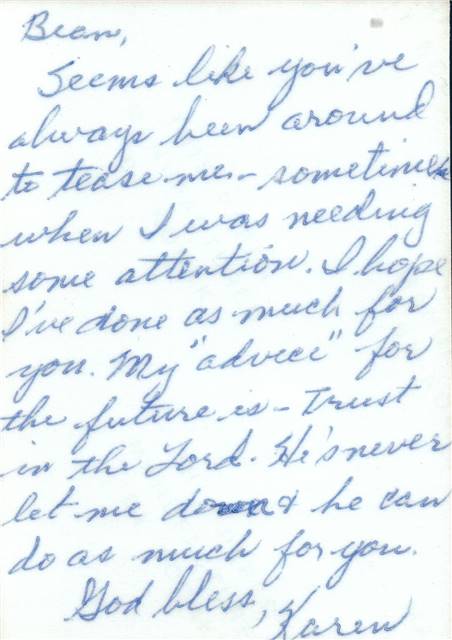 Bean,
Seems like you've
always been around
to tease me - sometimes
when I was needing
some attention. I hope
I've done as much for
you. My "advice" for
the future is - trust
in the Lord. He's never
let me down & he can
do as much for you.
God bless,
Karen